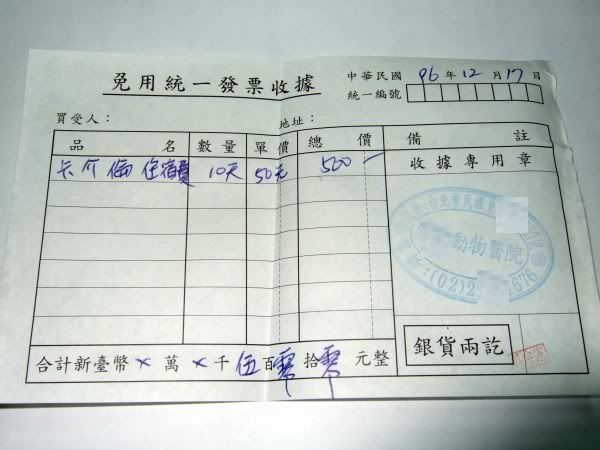 免用統一發票收據
中華民國 96 年 12 月 17 日
統一編號
買受人：
地址：
品名 數量 單價 總價 備註
卡介倫 住宿費 10天 50元 500一
收據專用章
台北市民
動物醫院
(02)2 1676
銀貨兩訖
合計新臺幣 × 萬 × 千 伍 百 零 拾 零 元整